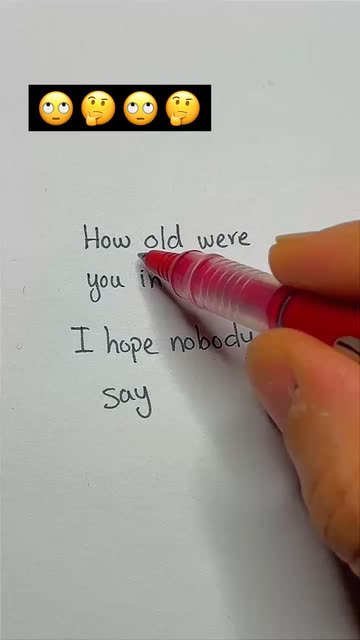 🙄🤔🙄🤔
How old were
you in
I hope nobody
say